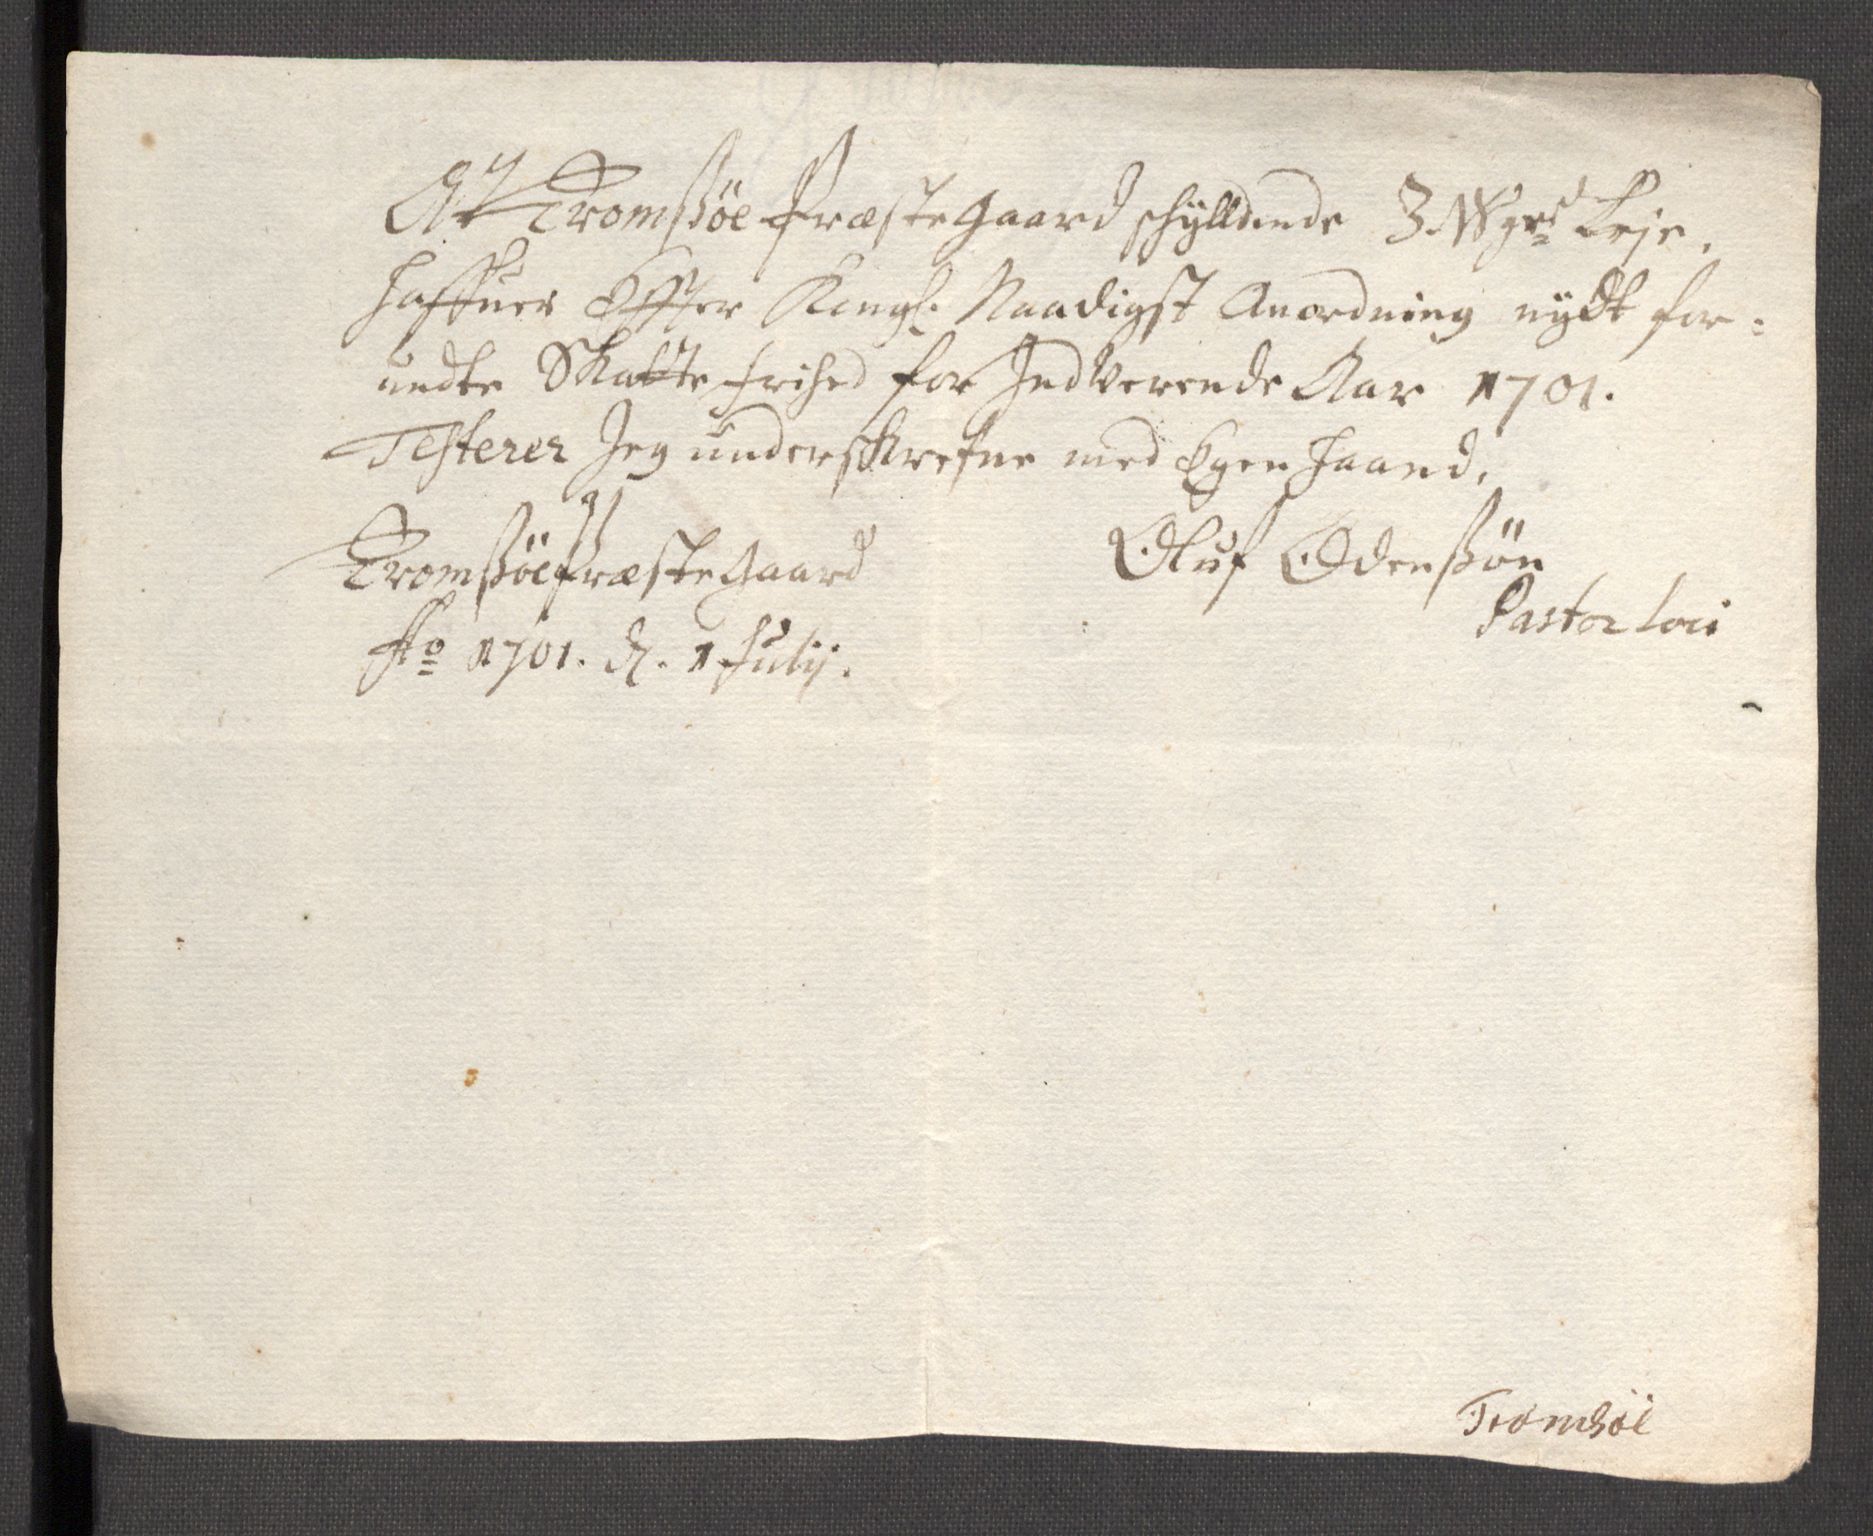 At Tromssøe Præstegaard schÿlldende 3. Wgrs Leje,
haffuer Effter Kongl: Naadigst Anordning nÿdt for=
undte Skatte frihed for Indverende Aar 1701.
Testerer Jeg underschrefne med Egen Haand,
Tromssöe Præste Gaard
Ao 1701. d. 1 Julij.
Oluf Odenssön
Pastor loci
Tromsöe